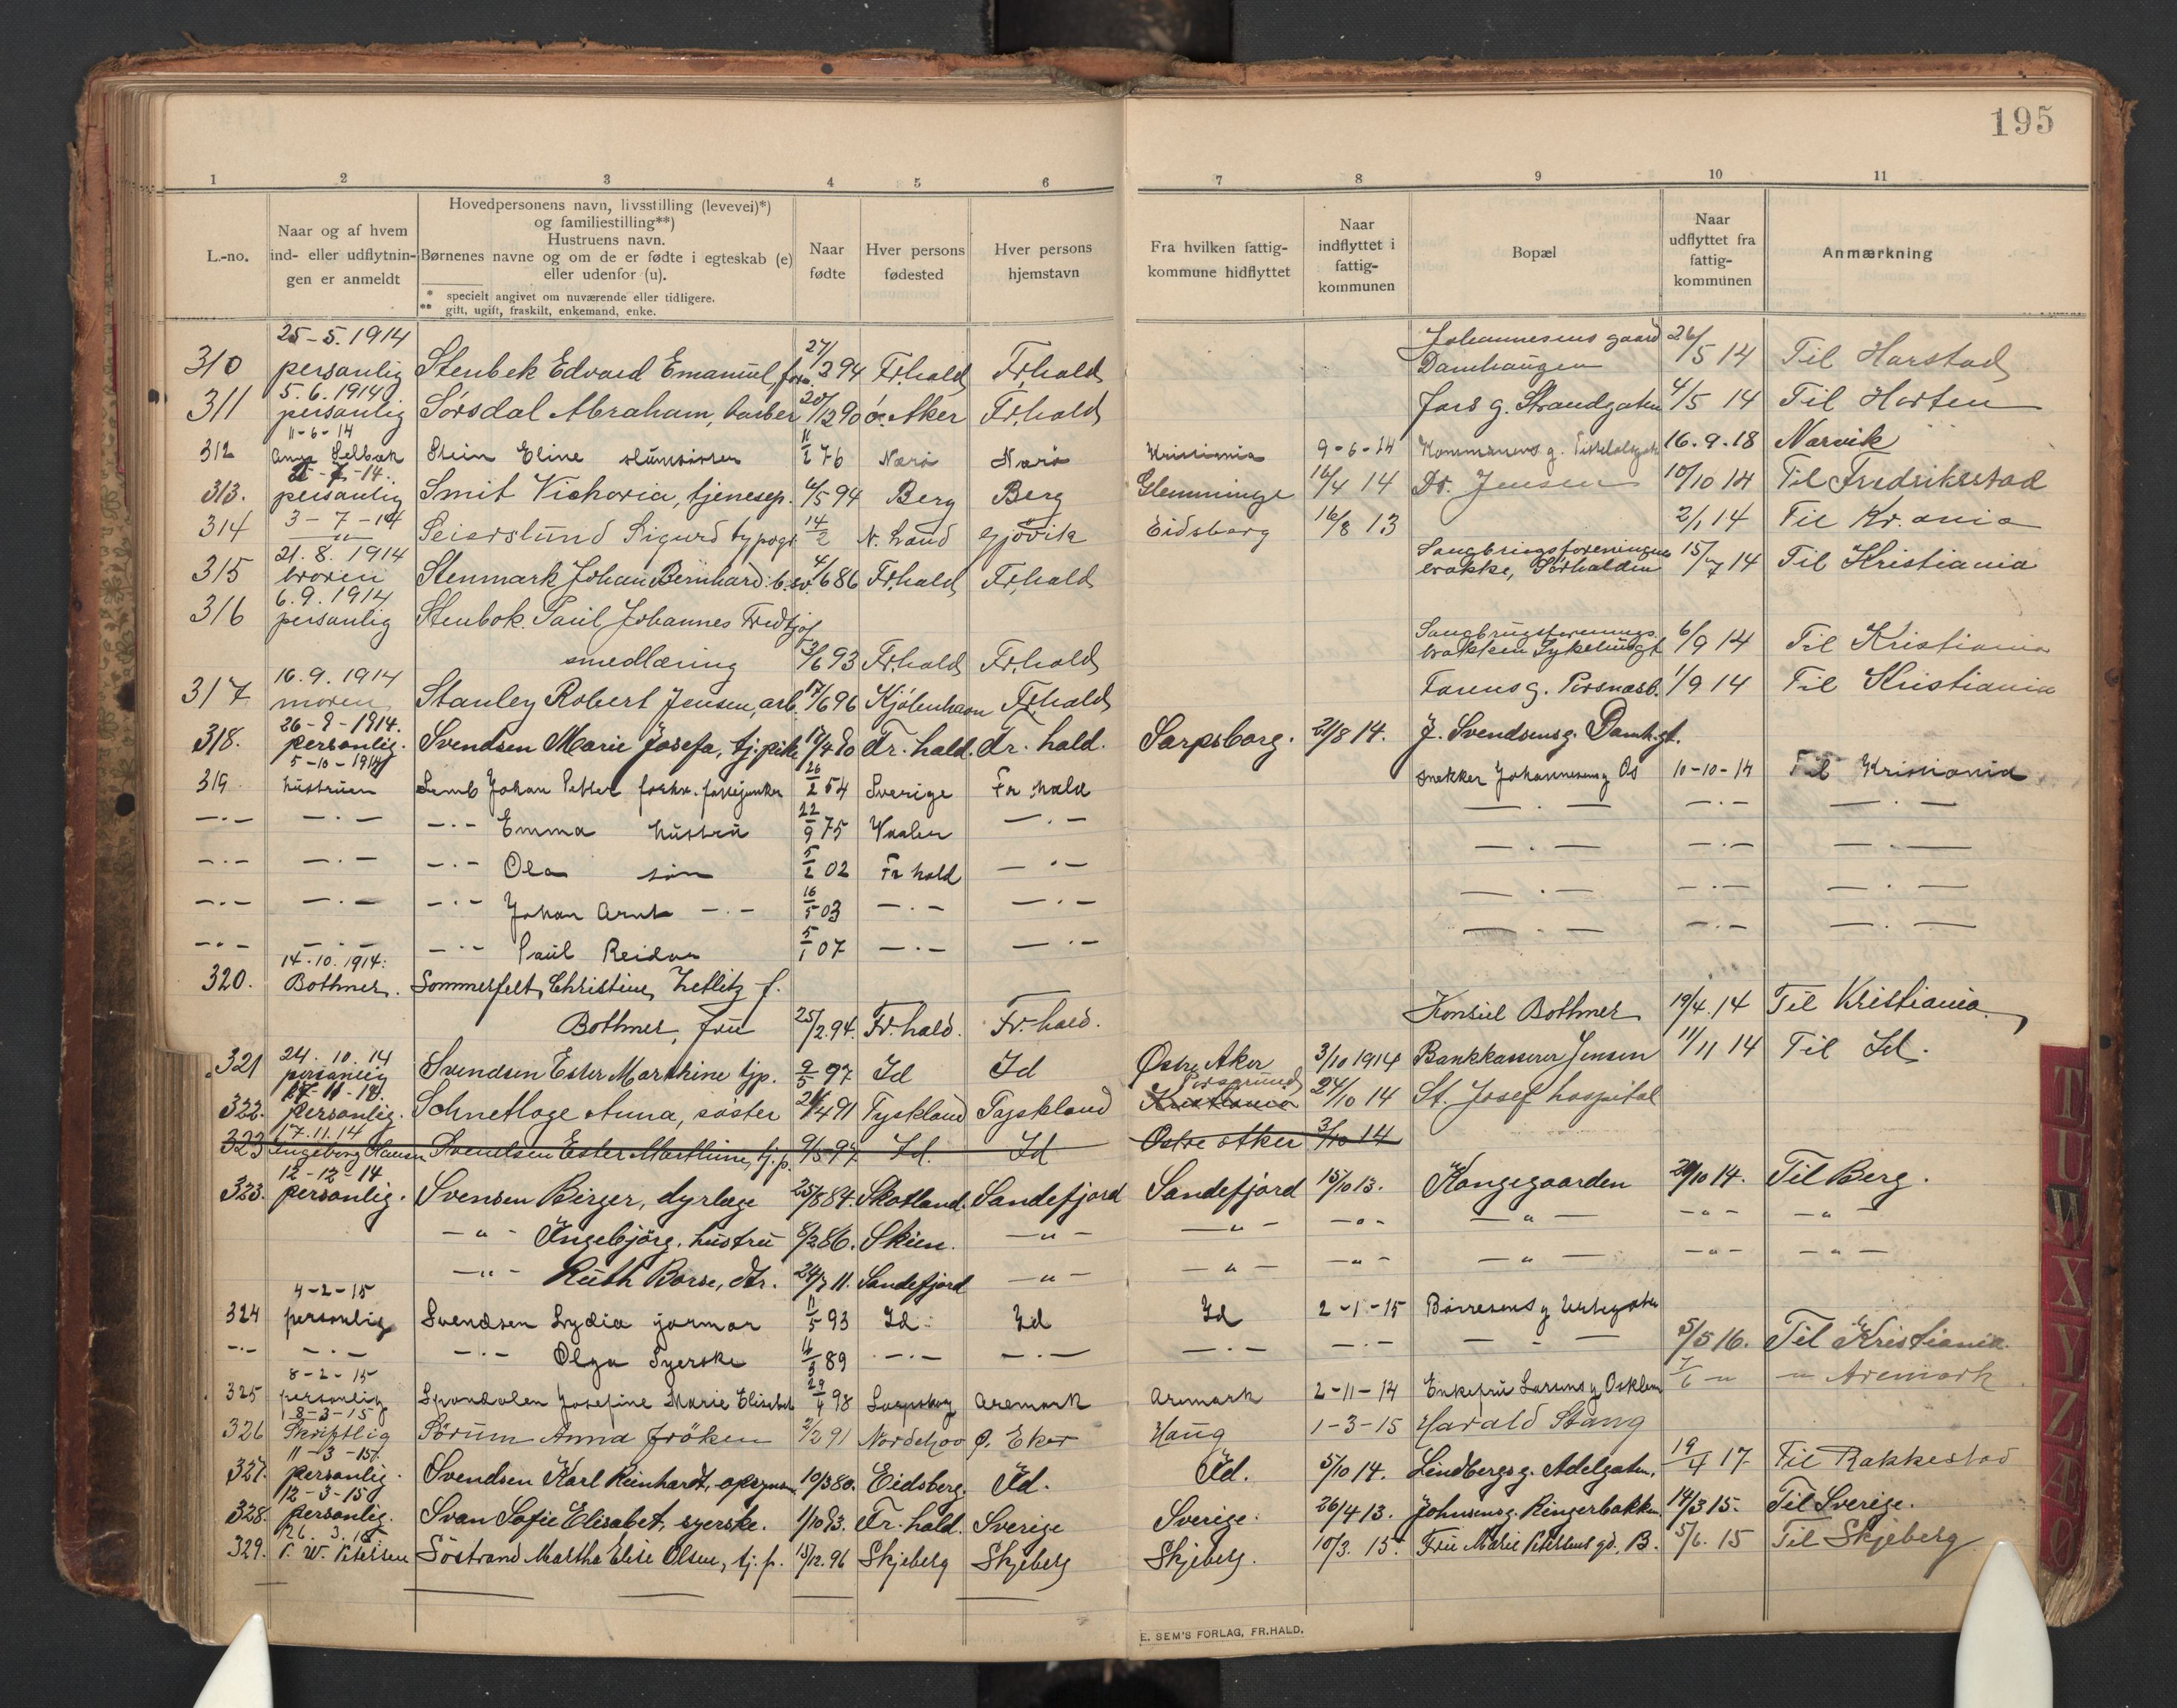 195
1 2 3 4 5 6 7 8 9 10 11
L.-no.
Naar og af hvem ind- eller udflytningen er anmeldt
Hovedpersonens navn, livsstilling (levevei)*) og familiestilling**)
Hustruens navn.
Børnenes navne og om de er fødte i egteskab (e) eller udenfor (u).
* specielt angivet om nuværende eller tidligere.
** gift, ugift, fraskilt, enkemand, enke.
Naar fødte
Hver persons fødested
Hver persons hjemstavn
Fra hvilken fattigkommune hidflyttet
Naar indflyttet i fattigkommunen
Bopæl
Naar udflyttet fra fattigkommunen
Anmærkning
25-5.1914 Johannesens gaard
310 personlig Stenbek Edvard Emanuel, 27/2 94 Fr.hald Fr.hald Damhaugen 26/5 14 Til Harstad
5.6.1914
311 personlig Sørsdal Abraham, barber 20/12 90 ø. Aker Fr.hald Fars g. Strandgaten 4/5 14 Til Horten
11-6-14
312 Anna Selbak Stein Eline slumsøster 11/2 76 Nærø Nærø Kristiania 9-6-14 16.9.18 Narvik
2-7-14.
313. personlig Smit Vichoria, tjenesep. 4/5 94 Berg Berg Glemminge 16/4 14 Dr. Jensen 10/10 14 Til Fredriksstad
3-7-14
314 —"— Seierslund Sigurd typogr 14/2 N. Land Gjøvik Eidsberg 16/8 13 2/1 14 Til Kr.ania
21.8.1914 Saugbrugsforeningens
315 broren Stenmark Johan Bernhard 4/6 86 Fr.hald Fr.hald brakke, Sørhalden 15/7 14 Til Kristiania
6.9.1914
316 personlig Stenbok Paul Johannes Fredtjof
Saugbrugsforenings
smedlæring 13/6 93 Fr.hald Fr.hald brakken Sykehusgt 6/9 14 Til Kristiania
16.9.1914
317 moren Stanley Robert Jensen, arb. 17/6 96 Kjøbenhavn Fr.hald Farens g. Persnæsb. 1/9 14 Til Kristiania
26-9-1914.
318. personlig. Svendsen Marie Josefa, tj.pike 17/4 90 Fr. hald. Fr. hald. Sarpsborg. 21/8 14. J. Svendsens g. Damh.gt.
5-10-1914
319 hustruen Lemb Johan Petter 26/2 54 Sverige Fr hald snekker Johannesens g Os 10-10-14 Til Kristiania
—.— —.— —.— Emma hustru 22/9 75 Vaaler —.— —.— —.— —.—
—.— —.— —.— Ola søn 5/2 02 Fr hald —.— —.— —.— —.—
—.— —.— —.— Johan Arnt —.— 16/5 03 —.— —.— —.— —.— —.—
—.— —.— —.— Paul Reidar 5/1 07 —.— —.— —.— —.— —.—
14.10.1914.
320. Bothner. Sommerfelt, Christine Zetlitz f.
Bothner, fru 25/2.94. Fr.hald. Fr.hald. Konsul Bothner 19/4.14 Til Kristiania
24.10.14
321 personlig Svendsen Ester Marthine tjp. 9/5 97 Id Id Østre Aker 3/10 1914 Bankkasserer Jensen 11/11 14 Til Id.
Porsgrund
322. personlig. Schnetlage Anna, søster 24/4 91 Tyskland Tyskland Kristiania 24/10 14 St. Josef hospital
17.11.14
323 Ingeborg Hansen Svendsen Ester Marthine, tj.p. 9/5 97 Id. Id Østre Aker 3/10 14
12-12-14
323. personlig. Svensen Birger, dyrlæge 25/8 84. Skotland. Sandefjord Sandefjord 15/10 13. Kongegaarden 29/10 14. Til Berg.
—"— Ingebjørg. hustru 8/2 86. Skien. —"— —"— —"— —"— —"— —"—
—"— Ruth Borse, dtr. 24/7 11. Sandefjord —"— —"— —"— —"— —"— —"—
4-2-15
324 personlig Svendsen Lydia jormor 11/5 93 Id. Id Id 2-1-15 Børresens g
—.— —.— —.— Olga Syerske 4/3 89 —.— —.— —.— —.— —.— 5/5 16. Til Kristiania.
8-2-15
325 personlig Spondalen Josefine Marie Elisabet 29/4 98 Sarpsborg Aremark Aremark 2-11-14 Enkefru Larsens g Oskleven 7/6 —"— —"— Aremark
8-3-15
326 Skriftlig Sørum Anna frøken 2/2 91 Norderhov Ø. Eker Haug 1-3-15 Harald Stang
11-3-15.
327. personlig. Svendsen Karl Reinhardt, opsynsm. 10/3 80. Eidsberg. Id. Id. 5/10 14. Lindbergs g. Adelgaten. 19/4 17 Til Rakkestad
12-3-15
328. personlig. Svan Sofie Elisabet, syerske. 1/10 93. Fr. hald. Sverige Sverige. 26/4 13. Johnsens g. Ringerbakken 14/3 15. Til Sverige.
26.3.15.
329. T. W. Petersen Søstrand Martha Elise Olsen, tj. p. 15/12.96 Skjeberg Skjeberg Skjeberg. 10/3. 15. Fru Marie Petersens gd. B. 5/6. 15 Til Skjeberg
E. SEM'S FORLAG, FR.HALD.
T
U
W
X
Y
Z
Æ
Ø